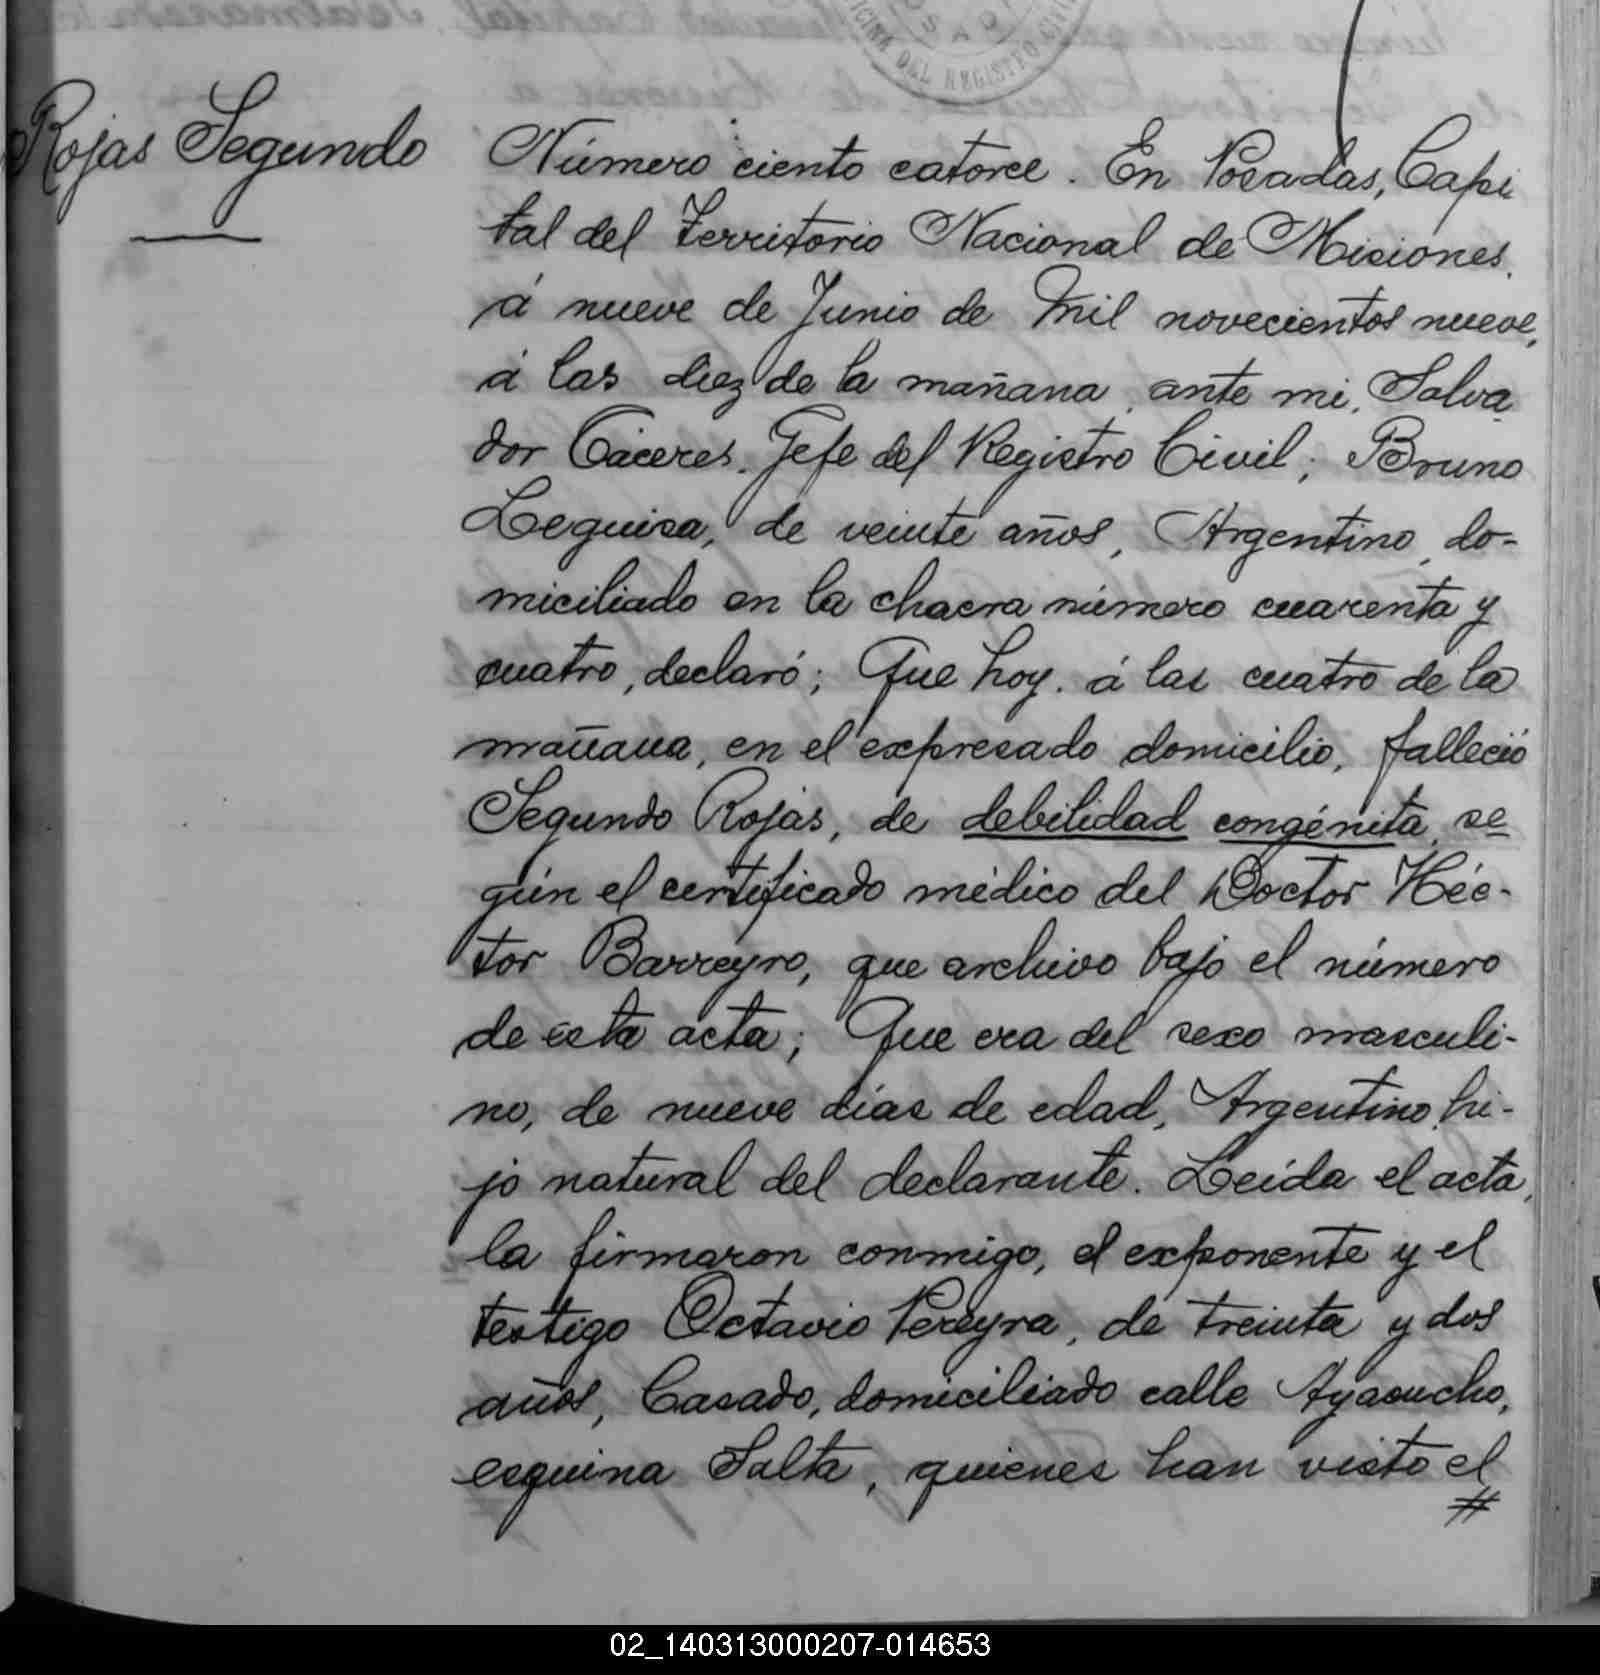 OFICINA DEL REGISTRO CIVIL
Rojas Segundo
Número ciento catorce. En Posadas, Capi
tal del Territorio Nacional de Misiones.
á nueve de Junio de Mil novecientos nueve,
á las diez de la mañana, ante mi, Salva
dor Cáceres. Jefe del Registro Civil; Bruno
Leguisa, de veinte años, Argentino, do-
miciliado en la chacra número cuarenta y
cuatro, declaró; Que hoy. á las cuatro de la
mañana, en el expresado domicilio, falleció
Segundo Rojas, de debilidad congénita, se
gún el certificado médico del Doctor Héc-
tor Barreyro, que archivo bajo el número
de esta acta; Que era del sexo masculi-
no, de nueve días de edad, Argentino, hi-
jo natural del declarante. Leída el acta,
la firmaron conmigo, el exponente y el
testigo Octavio Pereyra, de treinta y dos
años, Casado, domiciliado calle Ayacucho,
esquina Salta, quienes han visto el
#
02_140313000207-014653